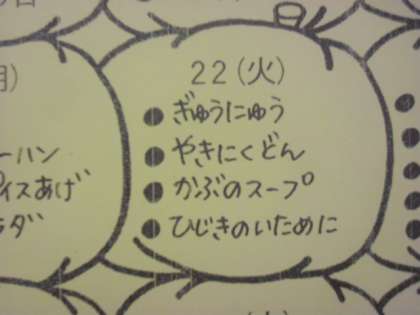 22(火)
ぎゅうにゅう
やきにくどん
かぶのスープ
ひじきのいために
ーハン
イスあげ
ラダ